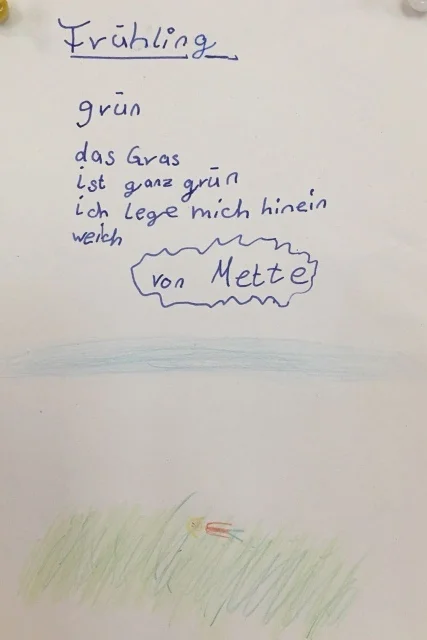 Frühling
grün
das Gras
ist ganz grün
ich lege mich hinein
weich
von Mette